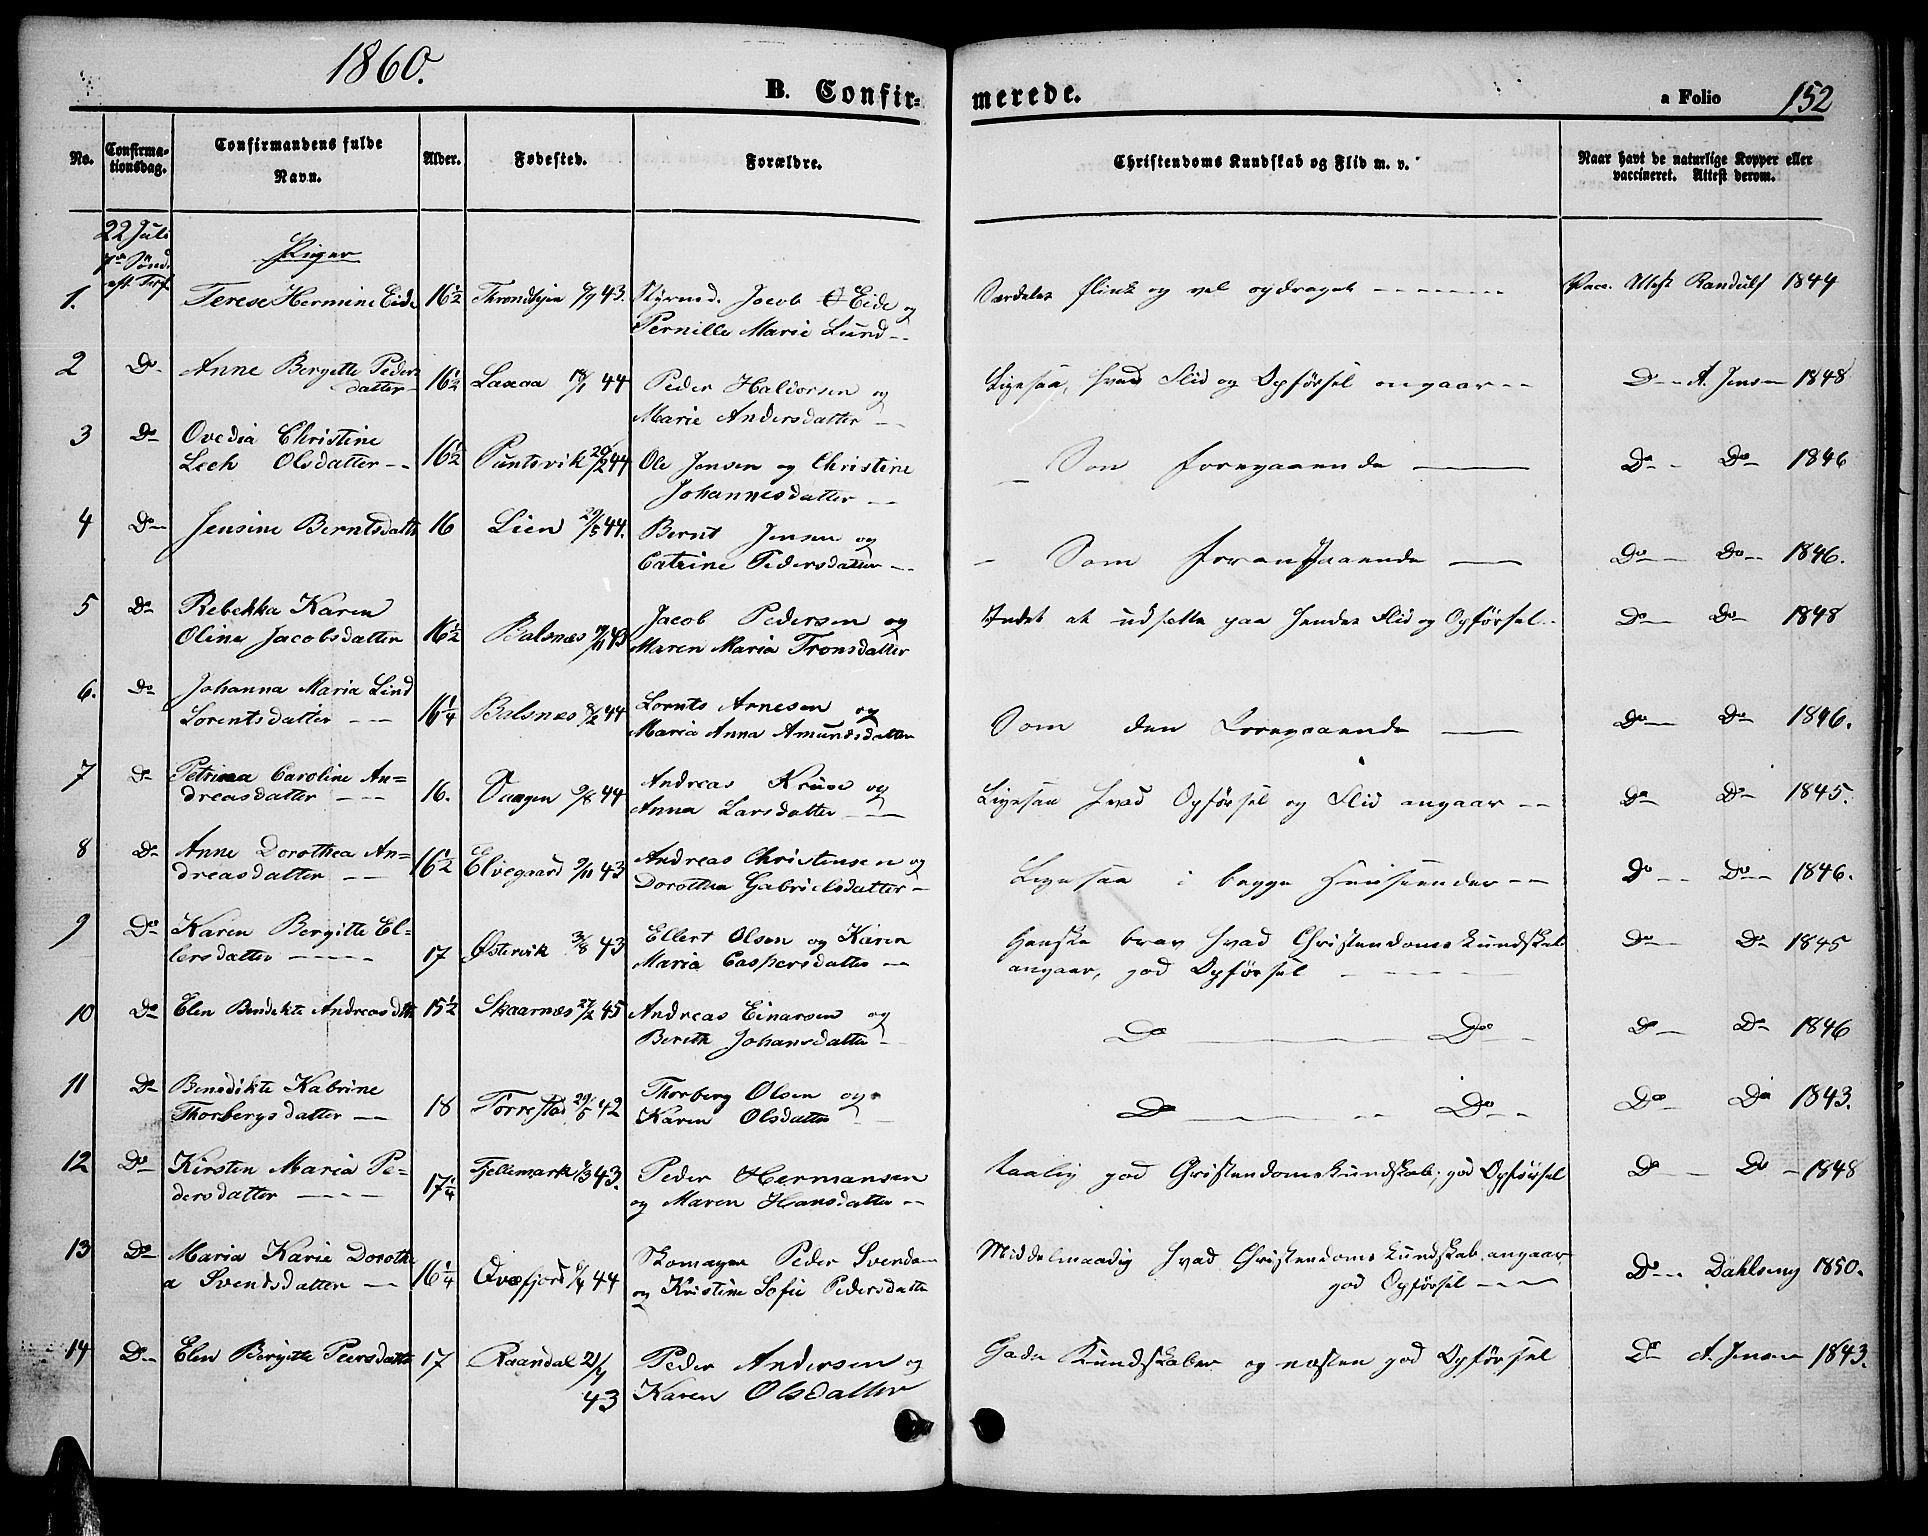 1860.
B. Confir-
merede.
a Folio 152
No.
Confirma-
tionsdag.
Confirmandens fulde
Navn.
Alder.
Fødested.
Forældre.
Christendoms Kundskab og Flid m. v.
Naar havt de naturlige Kopper eller
vaccineret. Attest derom.
22 Juli
7de Sønd.
eft. Tref.
Piger
1. Terese Hermine Eide 16½ Throndhjem 43. Jacob Eide og
Pernille Marie Lund
Særdeles flink og vel opdraget Vacc. Attest Randulf 1844
2 Do Anne Bergette Peders
datter 16½ Laxaa 18/1 44 Peder Haldorsen og
Marie Andersdatter
Ligesaa, hvad Flid og Opførsel angaar Do A. Jensen 1848
3 Do Ovedia Christine
Lech Olsdatter 16½ Puntsvik 20/2 44 Ole Jensen og Christine
Johannesdatter
Som foregaaende Do Do 1846
4 Do Jensine Berntsdatt 16 Lien 29/5 44. Bernt Jensen og
Catrine Pedersdatter
Som foranstaaende Do Do 1846.
5 Do Rebekka Karen
Oline Jacobsdatter 16½ Balsnes 43 Jacob Pedersen og
Maren Maria Tronsdatter
Intet at udsætte paa hendes Flid og Opførsel. Do Do 1848
6. Do Johanna Maria Lind
Lorentsdatter 16¼ Balsnæs 8/2 44 Lornts Arnesen og
Maria Anna Amundsdatter
Som den Foregaaende Do Do 1846.
7 Do Petrina Caroline An=
dreasdatter 16. Saagen 9/8 44 Andreas Kruse og
Anna Larsdatter
Ligesaa hvad Opførsel og Flid angaar Do Do 1845.
8 Do Anne Dorothea An=
dreasdatter 16½ Elvegaard 9/11 43 Andreas Christensen og
Dorothea Gabrielsdatter
Ligesaa i begge Henseender Do Do 1846.
9 Do Karen Bergitte El-
lersdatter 17 Østervik 3/8 43 Ellert Olsen og Karen
Maria Caspersdatter
Ganske brav hvad Christendomskundskab
angaar, god Opførsel Do Do 1845
10 Do Elen Bendikte Andreasdtt 15½ Skaarnæs 27/2 45 Andreas Einarsen og
Berith Johansdatter
Do Do Do Do 1846
11 Do Benedikte Katrine
Thorbergsdatter 18 Forrestad 29/5 42 Thorberg Olsen og
Karen Olsdatter
Do Do Do Do 1843.
12 Do Kirsten Maria Pe-
dersdatter 17¼ Fjellmark 43. Peder Hermansen
og Maren Hansdatter
taalig god Christendomskundskab, god Opførsel Do Do 1848
13 Do Maria Karie Dorothe
a Svendsdatter 16¼ Qvæfjord 44 Skomager Peder Svendsen
og Kristine Sofie Pedersdatte
Middelmaadig hvad Christendomskundskab angaar
god Opførsel Do Dahlseng 1850.
14 Do Elen Bergitte Peersdatte 17 Raandal 21/7
43 Peder Andersen og
Karen Olsdatter
Gode Kundskaber og næsten god Opførsel Do A. Jensen 1843.